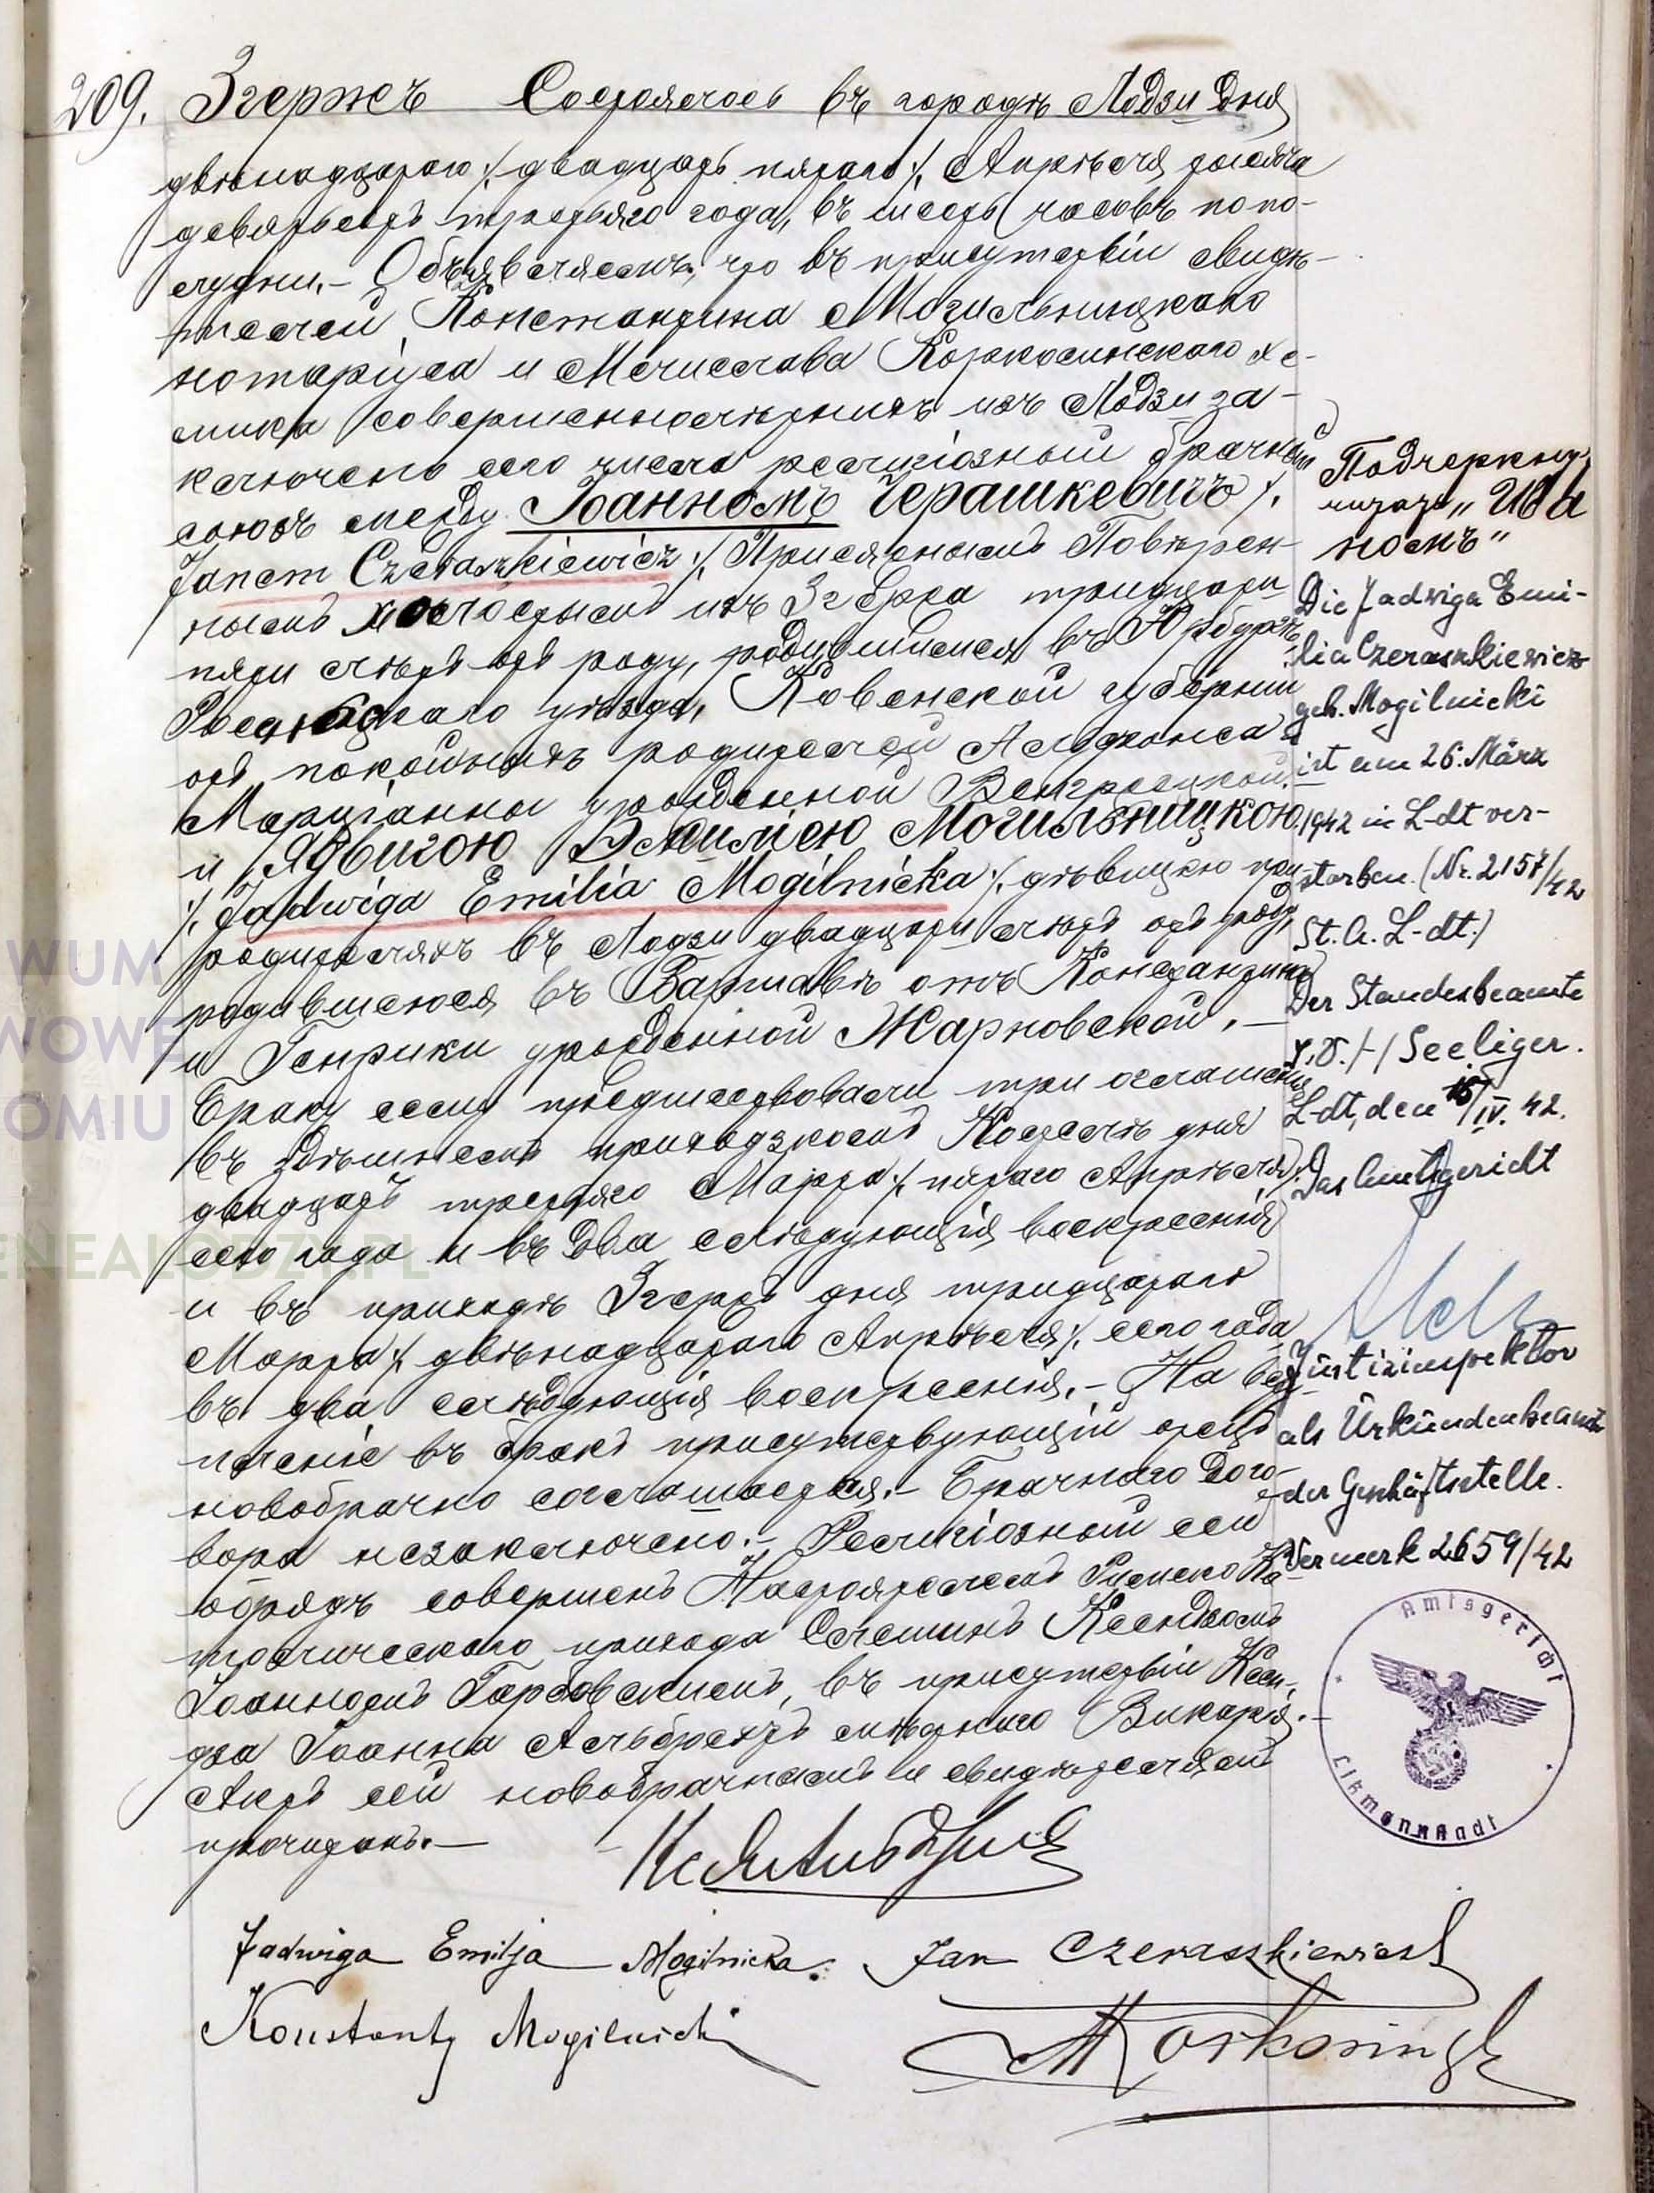 209. Згержъ Состоялось въ городѣ Лодзи дня
двѣнадцатаго /: двадцать пятаго :/ Апрѣля тысяча
девятьсотъ третьяго года, въ шесть часовъ попо-
лудни.- Объявляемъ, что въ присутствіи свидѣ-
телей Константина Могильницкаго
нотаріуса и Мечислава Коркосинскаго хи-
мика совершеннолѣтнихъ изъ Лодзи за-
ключено сего числа религіозный брачный
союзъ между Іоанномъ Черашкевичъ /:
Janem Czeraszkiewicz :/ Присяжнымъ Повѣрен-
нымъ холостымъ изъ Згержа тридцати
пяти лѣтъ отъ роду, родившимся въ Юрбургѣ
Россіенскаго уѣзда, Ковенской губерніи
отъ покойныхъ родителей Альфонса и
Марціанны урожденной
и Ядвигою Эмиліею Могильницкою
/: Jadwiga Emilia Mogilnicka :/ дѣвицею при
родителяхъ въ Лодзи двадцати лѣтъ отъ роду,
родившеюся въ Варшавѣ отъ Константина
и Генрики урожденной Жарновской.-
Браку сему предшествовали три оглашенія
въ здѣшнемъ приходскомъ Костелѣ дня
двадцать третьяго Марта /: пятаго Апрѣля :/
сего года и въ два слѣдующія воскресенія
и въ приходѣ Згержъ дня тридцатаго
Марта /: двѣнадцатаго Апрѣля :/ сего года
въ два слѣдующія воскресенія.- На всту-
пленіе въ бракъ присутствующій отецъ
новобрачной соглашается.- Брачнаго дого-
вора незаключено.- Религіозный сей
обрядъ совершенъ Настоятелемъ Римско Ка-
толическаго прихода Ксендзомъ
Іоанномъ въ присутствіи Ксен-
дза Іоанна Альбрехтъ мѣстнаго Викарія.-
Актъ сей новобрачнымъ и свидѣтелямъ
прочитанъ.-
Jadwiga Emilja Mogilnicka. Jan Czeraszkiewicz
Konstanty Mogilnicki
M Korkosiński
Подчеркну-
"Іоан
номъ"
Die Jadwiga Emi-
lia Czeraszkiewicz
geb. Mogilnicki
ist am 26. März
1942 in L-dt ver-
storben. (Nr. 2157/42
St. A. L-dt.)
Der Standesbeamte
I.V. /-/ Seeliger.
L-dt, den 15/IV. 42.
Das Amtsgericht
Justizinspektor
als Urkundenbeamte
der Geschäftsstelle.
Vermerk 2659/42
Amtsgericht
Litzmannstadt
WUM
WOWE
OMIU
ENEALODZY.PL